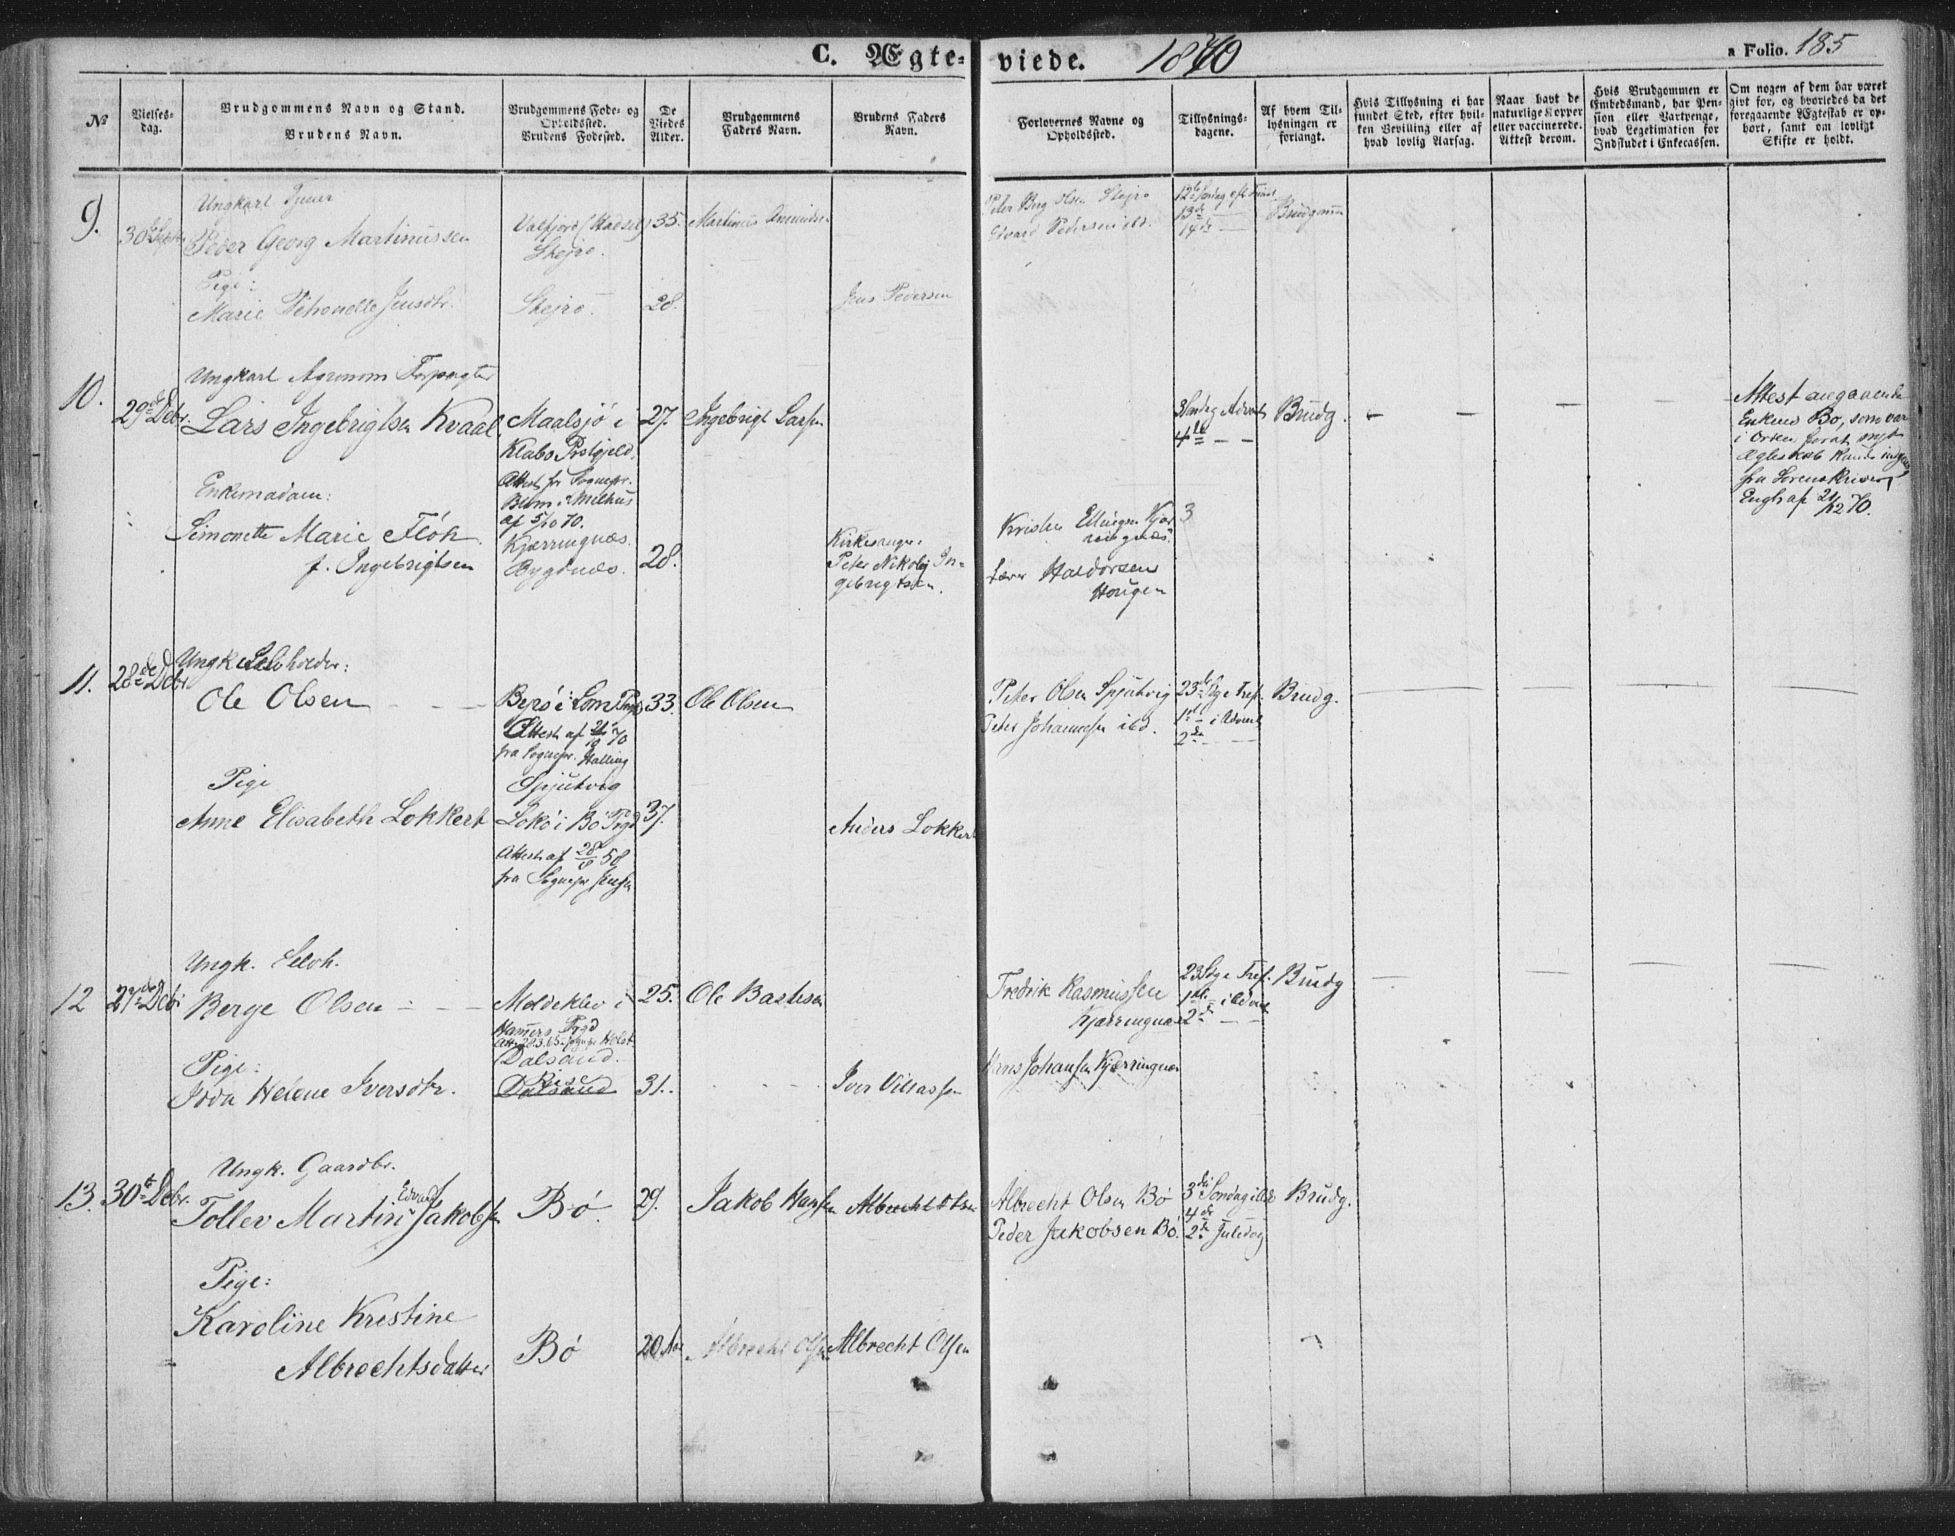 C. Ægte-
viede. 1870
a Folio. 185
№
Vielses-
dag.
Brudgommens Navn og Stand.
Brudens Navn.
Brudgommens Føde- og
Opholdssted.
Brudens Fødested.
De
Viedes
Alder.
Brudgommens
Faders Navn.
Brudens Faders
Navn.
Forlovernes Navne og
Opholdssted.
Tillysnings-
dagene.
Af hvem Til-
lysningen er
forlangt.
Hvis Tillysning ei har
fundet Sted, efter hvil-
ken Bevilling eller af
hvad lovlig Aarsag.
Naar havt de
naturlige Kopper
eller vaccinerede.
Attest derom.
Hvis Brudgommen er
Embedsmand, har Pen-
sion eller Vartpenge,
hvad Legitimation for
Indskudet i Enkecassen.
Om nogen af dem har været
givt før, og hvorledes da det
foregaaende Ægteskab er op-
hørt, samt om lovligt
Skifte er holdt.
9.
30
Ungkarl
Peder Georg Martinussen
Hadsel
Skejrø.
35.
Martinus
Pige:
Marie Petronelle Jensdtr.
Skejrø.
28.
Jens Pedersen
Peter Berg Olsen Skejrø
Edvard Pedersen ibd.
12te Søndag eft. Trinit.
13de —
14de —
Brudgom
10.
29de Debr.
Ungkarl Agronom Forpagter
Lars Ingebrigtsen Kvaal
Maalsjø i
Klæbo Prstgjeld.
Attest fr Sognepr.
Blom i Melhus
af 5/10 70.
27.
Ingebrigt Larsen
3 Søndag Advent
4de — —
Brudg.
Attest angaaende
Enkens Bo, som var
i Orden forat nyt
Ægteskab kunde indgaaes
fra Sorenskriver
Engh af 21/12 70.
Enkemadam:
Simonette Marie Fløh
f. Ingebrigtsen
Kjærringnæs.
Bygdnæs.
28.
Kirkesanger:
Peter Nikolaj In-
gebrigtsen.
Kristen Ellingsen Kjær
ringnæs.
Lærer Haldorsen
Hougen
11.
28de Debr
Ungk Selvheder:
Ole Olsen
i Lom Prgd
Attest af
fra Sognepr. Halling
Spjutvig
33.
Ole Olsen
Peter Olsen Spjutvig
Peter Johannesen ibd.
23de Sge Tref.
1ste — i Advent
2den — —
Brudg.
Pige
Anne Elisabeth Lokkert
i Bø Prgd
Attest af 28/ 58
fra Sognepr Jensen
37.
Anders Lokkert
12
27de Debr
Ungk. Selvh.
Berge Olsen
Moldeklev i
Hamerø Prgd
Dalsand.
25.
Ole Bastesen
Fredrik Rasmussen
Kjærringnæs
23 Sdge Tref.
1ste — i Advent
2den — —
Brudg
Pige:
Helene Iversdtr.
Dalsand
31.
Iver Villassen
Hans Johansen Kjærringnæs
13.
30te Debr.
Ungk. Gaardbr.
Edvard
Toller Martin Jakobsen
Bø
29.
Jakob Hansen
Albrecht Olsen
Albrecht Olsen Bø
Peder Jakobsen Bø.
3die Søndag
4de
2den Juledag
Brudg.
Pige:
Karoline Kristine
Albrechtsdatter
Bø
20 Aar
Albrecht Olsen
Albrecht Olsen